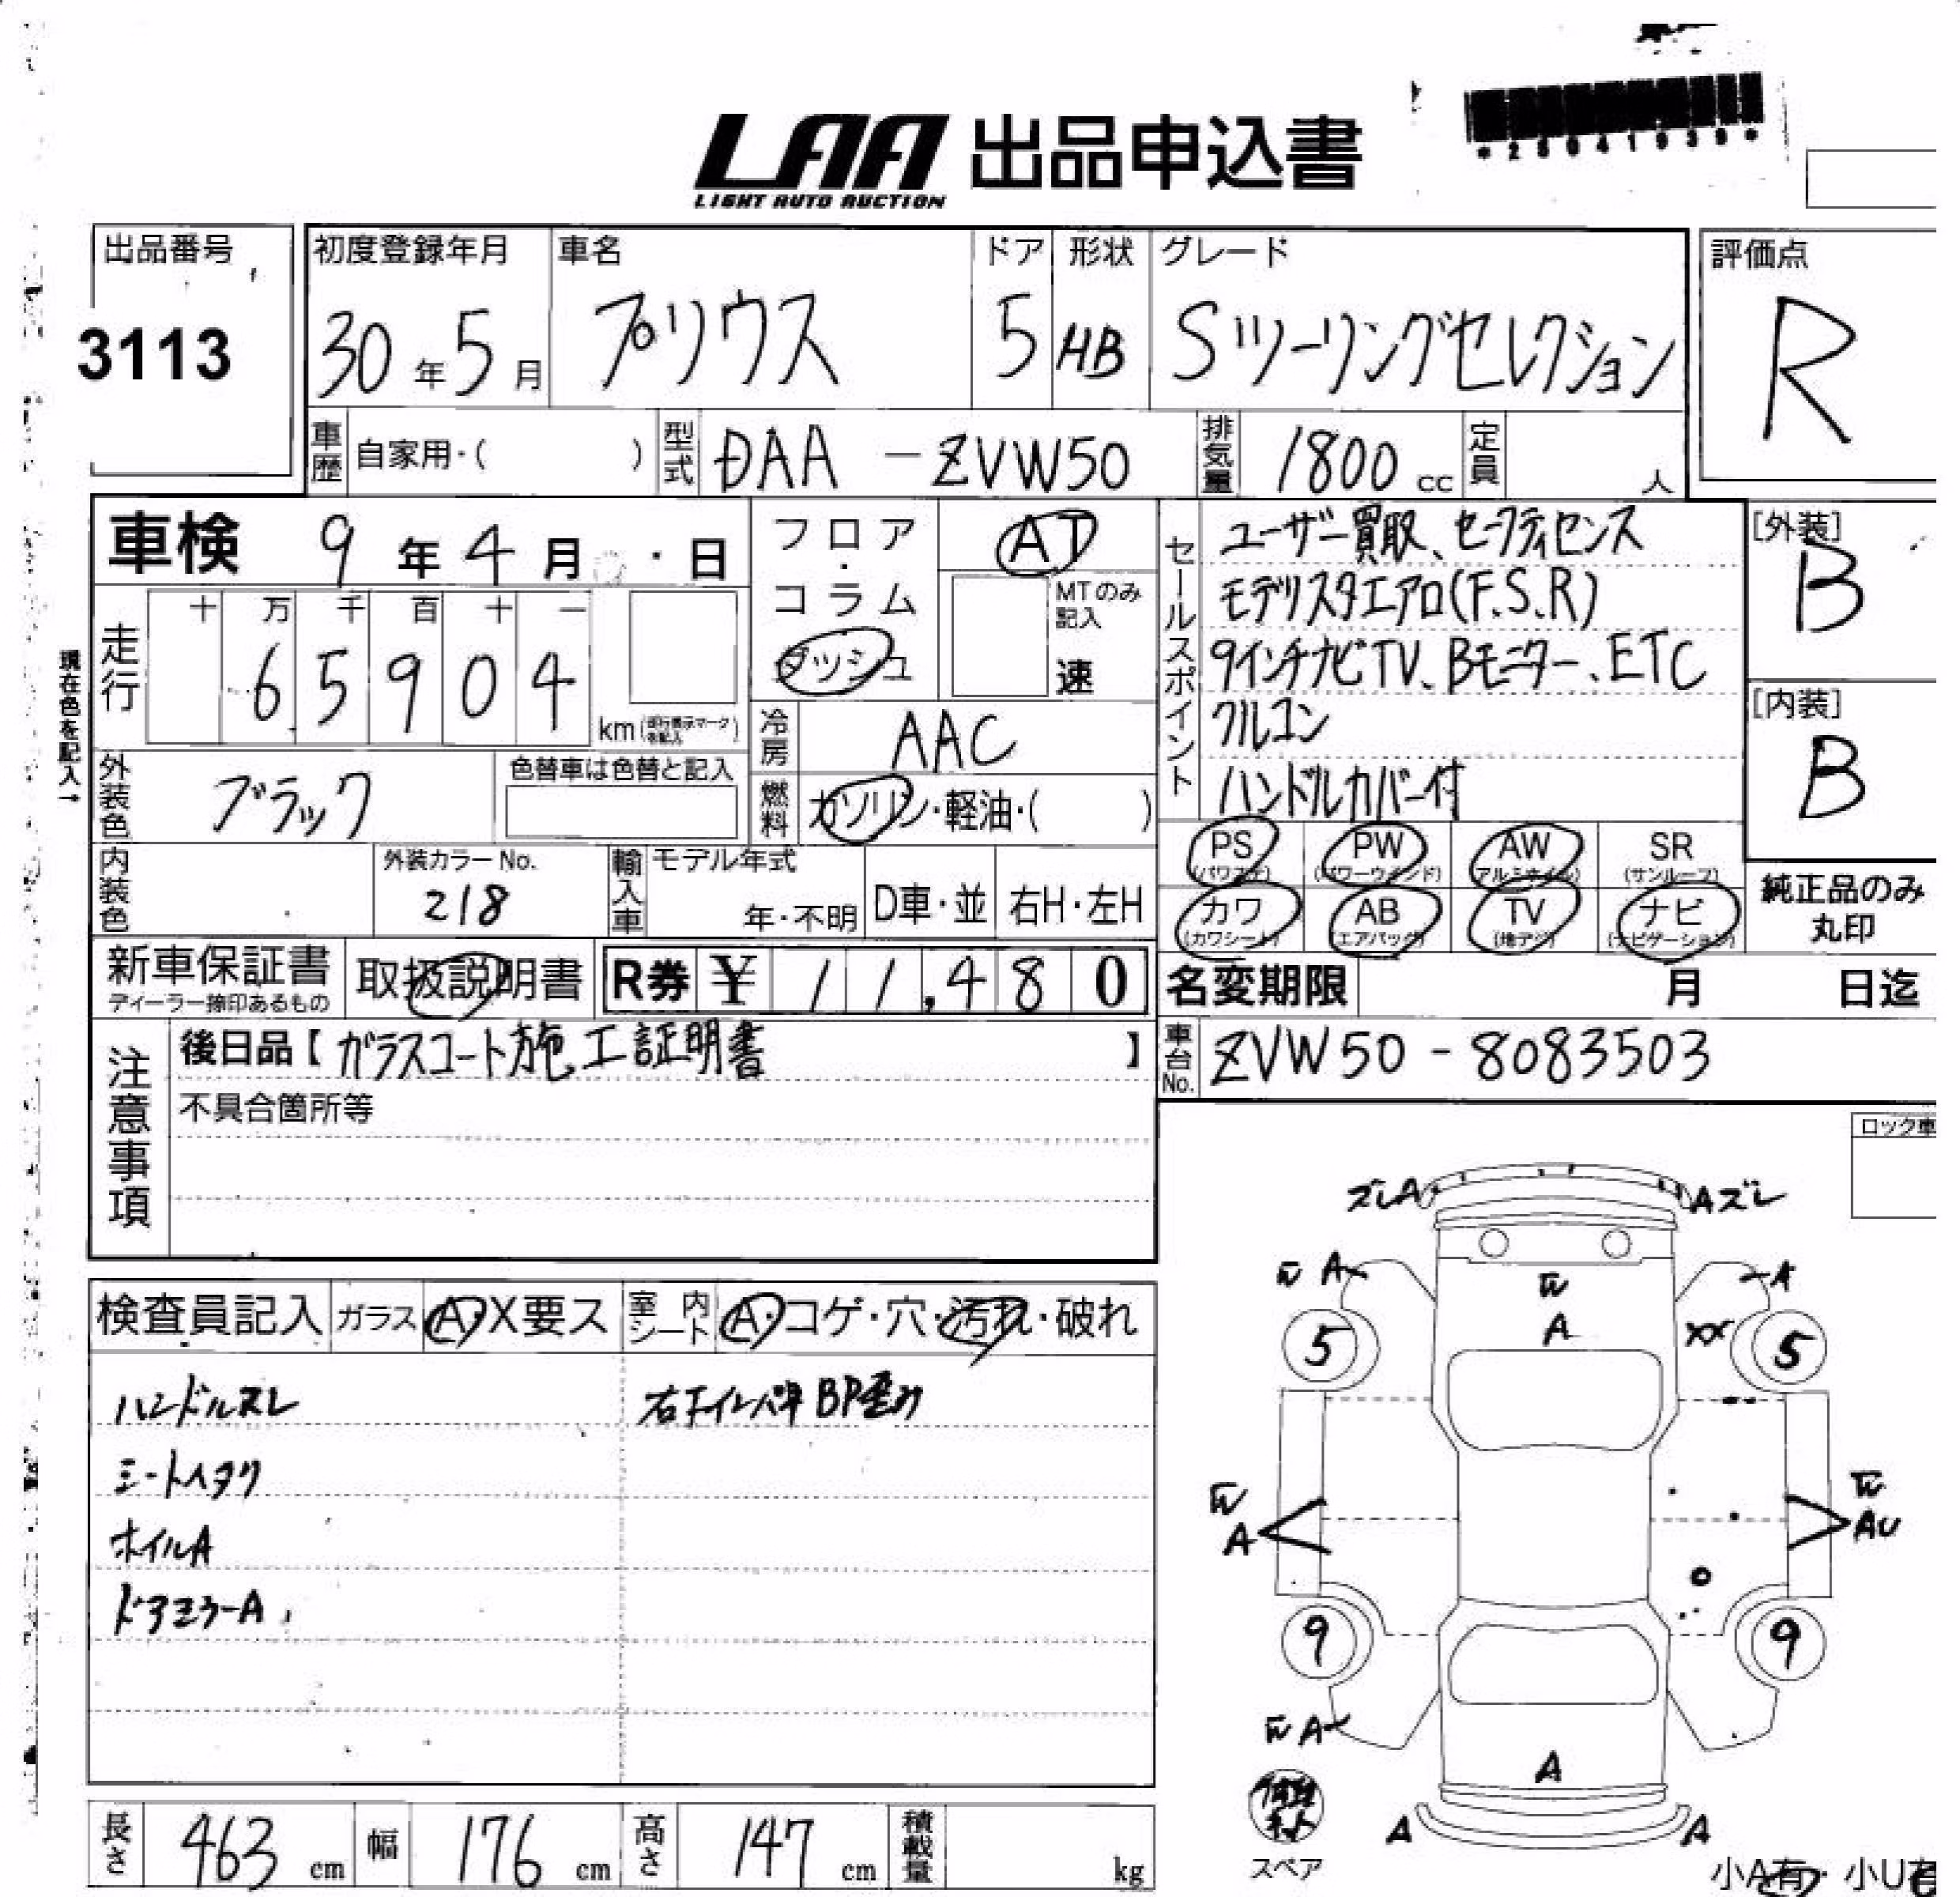 *2504193９*
LAA 出品申込書
LIGHT AUTO AUCTION
出品番号
3113
初度登録年月 車名 ドア 形状 グレード 評価点
30年5月 プリウス 5 HB Sツーリングセレクション R
車歴 自家用・( ) 型式 DAA-ZVW50 排気量 1800cc 定員 人
車検 9年4月 ・日
フロア・コラム ダッシュ
AT
MTのみ記入
速
現在色を記入→
走行 十万千百十一
65904 km
冷房 AAC
燃料 ガソリン・軽油・( )
外装色 ブラック
色替車は色替と記入
内装色
外装カラーNo.
218
輸入車 モデル年式
年・不明 D車・並 右H・左H
セールスポイント
ユーザー買取、セーフティセンス
モデリスタエアロ(F.S.R)
9インチナビTV、Bモニター、ETC
クルコン
ハンドルカバー付
[外装]
B
[内装]
B
PS (パワステ) PW (パワーウインド) AW (アルミホイル) SR (サンルーフ)
カワ (カワシート) AB (エアバッグ) TV (地デジ) ナビ (ナビゲーション)
純正品のみ
丸印
新車保証書 取扱説明書 R券 ¥ 11,480
ディーラー捺印あるもの
名変期限 月 日迄
車台No. ZVW50-8083503
注意事項
後日品【ガラスコート施工証明書】
不具合箇所等
ロック車
検査員記入 ガラス A・X要ス 室内シート A・コゲ・穴・汚れ・破れ
ハンドルスレ
右テールパネ BP歪み
シートヘタリ
ホイルA
ドアミラーA
ズレA Aズレ
W A A
W
A
XX
5 5
W
A
W
AU
9 9
W A
A
A A
スペア
長さ 463cm 幅 176cm 高さ 147cm 積載量 kg
小A有・小U有